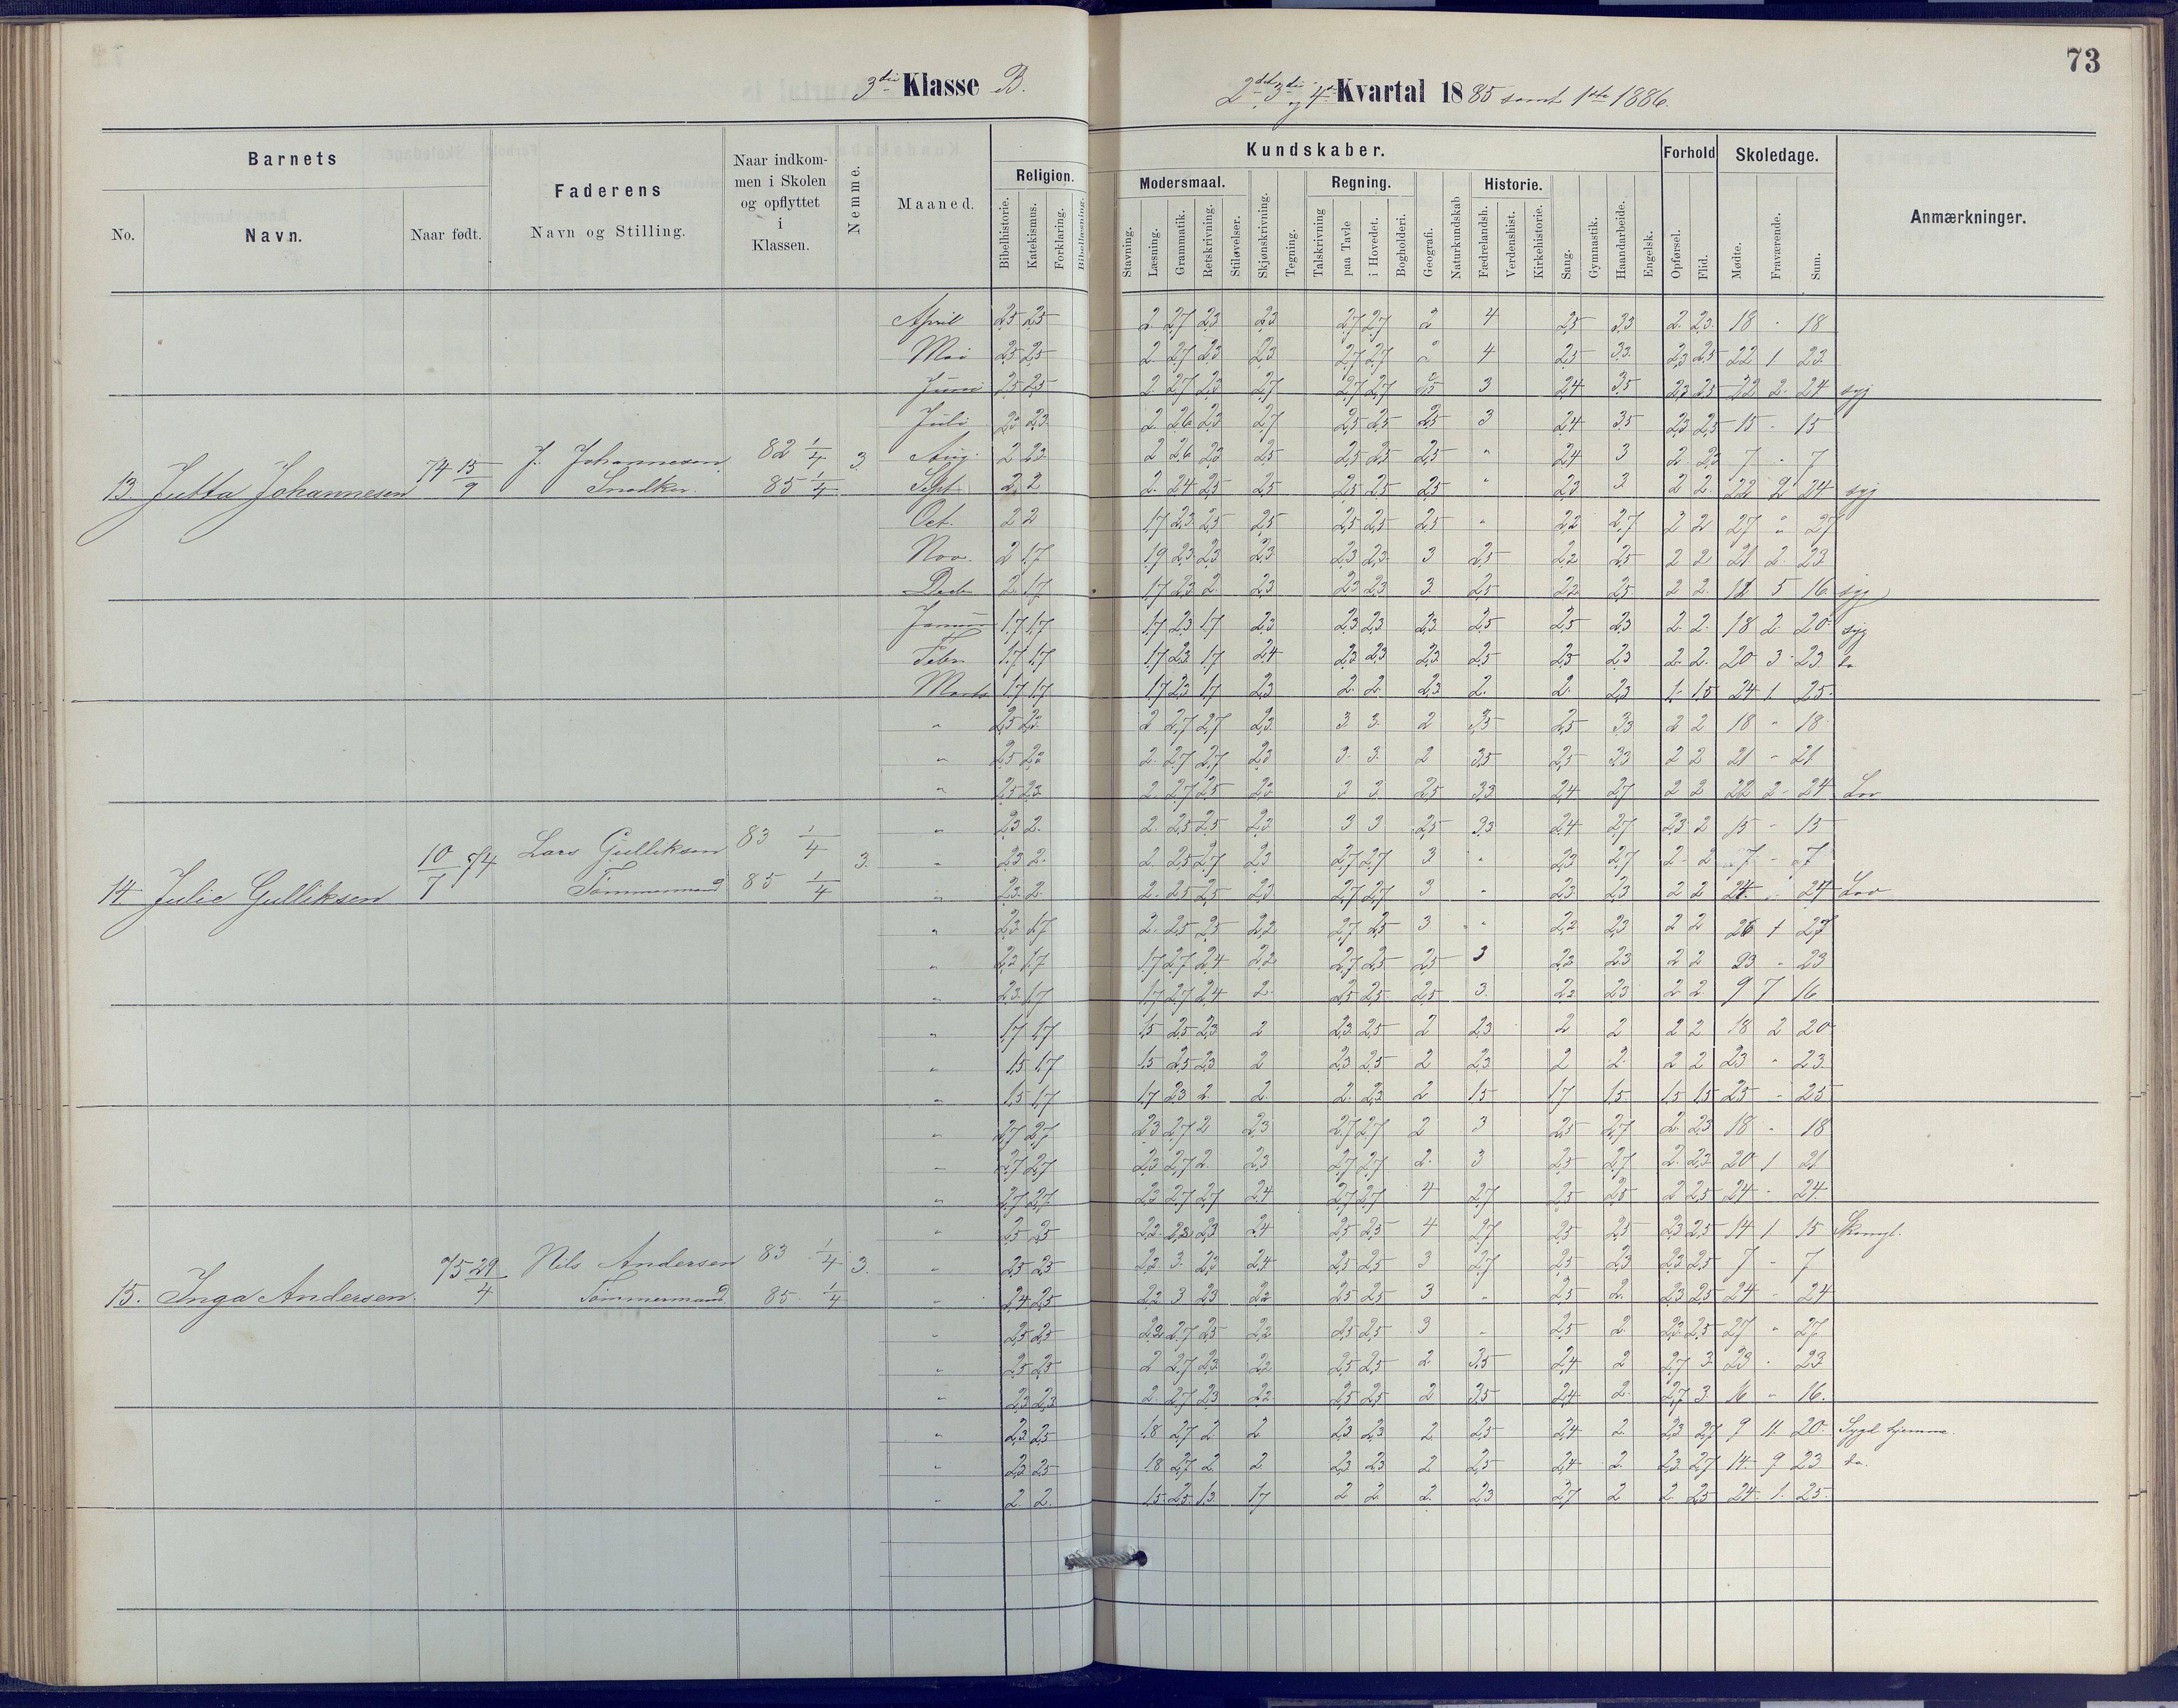 73
3die Klasse B.
2det 3die og 4de Kvartal 1885 samt 1ste 1886.
Barnets
No.
Navn.
Naar født.
Faderens
Navn og Stilling.
Naar indkom-
men i Skolen
og opflyttet
i
Klassen.
Nemme.
Maaned.
Kundskaber.
Religion.
Bibelhistorie.
Katekismus.
Forklaring.
Bibellæsning.
Modersmaal.
Stavning.
Læsning.
Grammatik.
Retskrivning.
Stiløvelser.
Skjønskrivning.
Tegning.
Regning.
Talskrivning
paa Tavle
i Hovedet.
Bogholderi.
Geografi.
Naturkundskab
Historie.
Fædrelandsh.
Verdenshist.
Kirkehistorie.
Sang.
Gymnastik.
Haandarbeide.
Engelsk.
Forhold
Opførsel.
Flid.
Skoledage.
Mødte.
Fraværende.
Sum.
Anmærkninger.
April 2,5 2,5 2 2,7 2,3 2,3 2,7 2,7 2 4 2,5 3,3 2 2,3 18 - 18
Mai 2,5 2,5 2 2,7 2,3 2,3 2,7 2,7 2 4 2,5 3,3 2,3 2,5 22 1 23
Juni 2,5 2,5 2 2,7 2,3 2,7 2,7 2,7 3 2,4 3,5 2,3 2,5 22 2 24 syg
Juli 2,3 2,3 2 2,6 2,3 2,7 2,5 2,5 2,5 3 2,4 3,5 2,3 2,5 15 - 15
13. Jutta Johannesen 74 15/9 J. Johannesen Snedker. 82 1/4 85 1/4 3.
Aug. 2 2,3 2 2,6 2,3 2,5 2,5 2,5 2,5 " 2,4 3 2 2,3 7 - 7
Sept 2 2 2 2,4 2,5 2,5 2,5 2,5 2,5 " 2,3 3 2 2 22 2 24 syg
Oct. 2 2 1,7 2,3 2,5 2,5 2,5 2,5 2,5 " 2,2 2,7 2 2 27 " 27
Nov. 2 1,7 1,9 2,3 2,3 2,3 2,3 2,3 3 2,5 2,2 2,5 2 2 21 2 23
Decb 2 1,7 1,7 2,3 2 2,3 2,3 2,3 3 2,5 2,2 2,5 2 2 5 16 syg
Januar 1,7 1,7 1,7 2,3 1,7 2,3 2,3 2,3 2,3 2,5 2,5 2,3 2 2 18 2 20 syg
Febr 1,7 1,7 1,7 2,3 1,7 2,4 2,3 2,3 2,3 2,5 2,5 2,3 2 2 20 3 23 do
Marts 1,7 1,7 1,7 2,3 1,7 2,3 2 2 2,3 2 2 2,3 1 1,5 24 1 25
" 2,5 2,3 2 2,7 2,7 2,3 3 3 2 3,5 2,5 3,3 2 2 18 - 18
" 2,5 2,3 2 2,7 2,7 2,3 3 3 2 3,5 2,5 3,3 2 2 21 - 21
" 2,5 2,3 2 2,7 2,5 2,3 3 3 2,5 3,3 2,4 2,7 2 2 22 2 24 Lov
" 2,3 2 2 2,5 2,5 2,3 3 3 2,5 3,3 2,4 2,7 2,3 2 15 - 15
14 Julie Gulliksen 10/7 74 Lars Gulliksen Tømmermand 83 1/4 85 1/4 3.
" 2,3 2 2 2,5 2,7 2,3 2,7 2,7 3 " 2,3 2,7 2 2 7 - 7
" 2,3 2 2 2,5 2,5 2,3 2,7 2,7 3 " 2,3 2,3 2 2 24 - 24 Lov
" 2,3 1,7 2 2,5 2,5 2,2 2,7 2,5 3 " 2,2 2,3 2 2 26 1 27
" 2,3 1,7 1,7 2,7 2,4 2,2 2,7 2,5 2,5 3 2,2 2,3 2 2 23 - 23
" 2,3 1,7 1,7 2,7 2,4 2 2,5 2,5 2,5 3 2,2 2,3 2 2 9 7 16
" 1,7 1,7 1,5 2,5 2,3 2 2,3 2,5 2 2,3 2 2 2 2 18 2 20
" 1,5 1,7 1,5 2,5 2,3 2 2,3 2,5 2 2,3 2 2 2 2 23 - 23
" 1,5 1,7 1,7 2,3 2 2 2 2,3 2 1,5 1,7 1,5 1,5 1,5 25 - 25
" 2,7 2,7 2,3 2,7 2 2,3 2,7 2,7 2 3 2,5 2,7 2 2,3 18 - 18
" 2,7 2,7 2,3 2,7 2 2,3 2,7 2,7 2 3 2,5 2,7 2 2,3 20 1 21
" 2,7 2,7 2,3 2,7 2,7 2,4 2,7 2,7 4 2,7 2,5 2,5 2 2,5 24 - 24
" 2,5 2,5 2,2 2,3 2,4 2,5 2,5 4 2,7 2,5 2,5 2,3 2,5 14 1 15
15. Inga Andersen. 75 29/4 Nils Andersen Tømmermand. 83 1/4 85 1/4 3.
" 2,5 2,5 2,2 3 2,3 2,4 2,5 2,5 3 2,7 2,5 2,3 2,3 2,5 7 - 7
" 2,4 2,5 2,2 3 2,3 2,2 2,5 2,5 3 " 2,5 2 2,3 2,5 24 - 24
" 2,5 2,5 2,2 2,7 2,5 2,2 2,5 2,5 3 " 2,5 2 2,3 2,5 27 " 27
" 2,5 2,5 2 2,7 2,3 2,2 2,5 2,5 2 3,5 2,4 2 2,7 3 23 - 23
" 2,3 2,3 2 2,7 2,3 2,2 2,5 2,5 2 3,5 2,4 2 2,7 3 16 - 16.
" 2,3 2,5 1,8 2,7 2 2 2,3 2,3 2 2,5 2,4 2 2,3 2,7 9 11 20 Sygd. hjemme.
" 2,3 2,5 1,8 2,7 2 2 2,3 2,3 2 2,5 2,4 2 2,3 2,7 14 9 23 do.
" 2 2 1,5 2,5 1,3 1,7 2 2 2 2,3 2,7 2 2 2,5 24 1 25